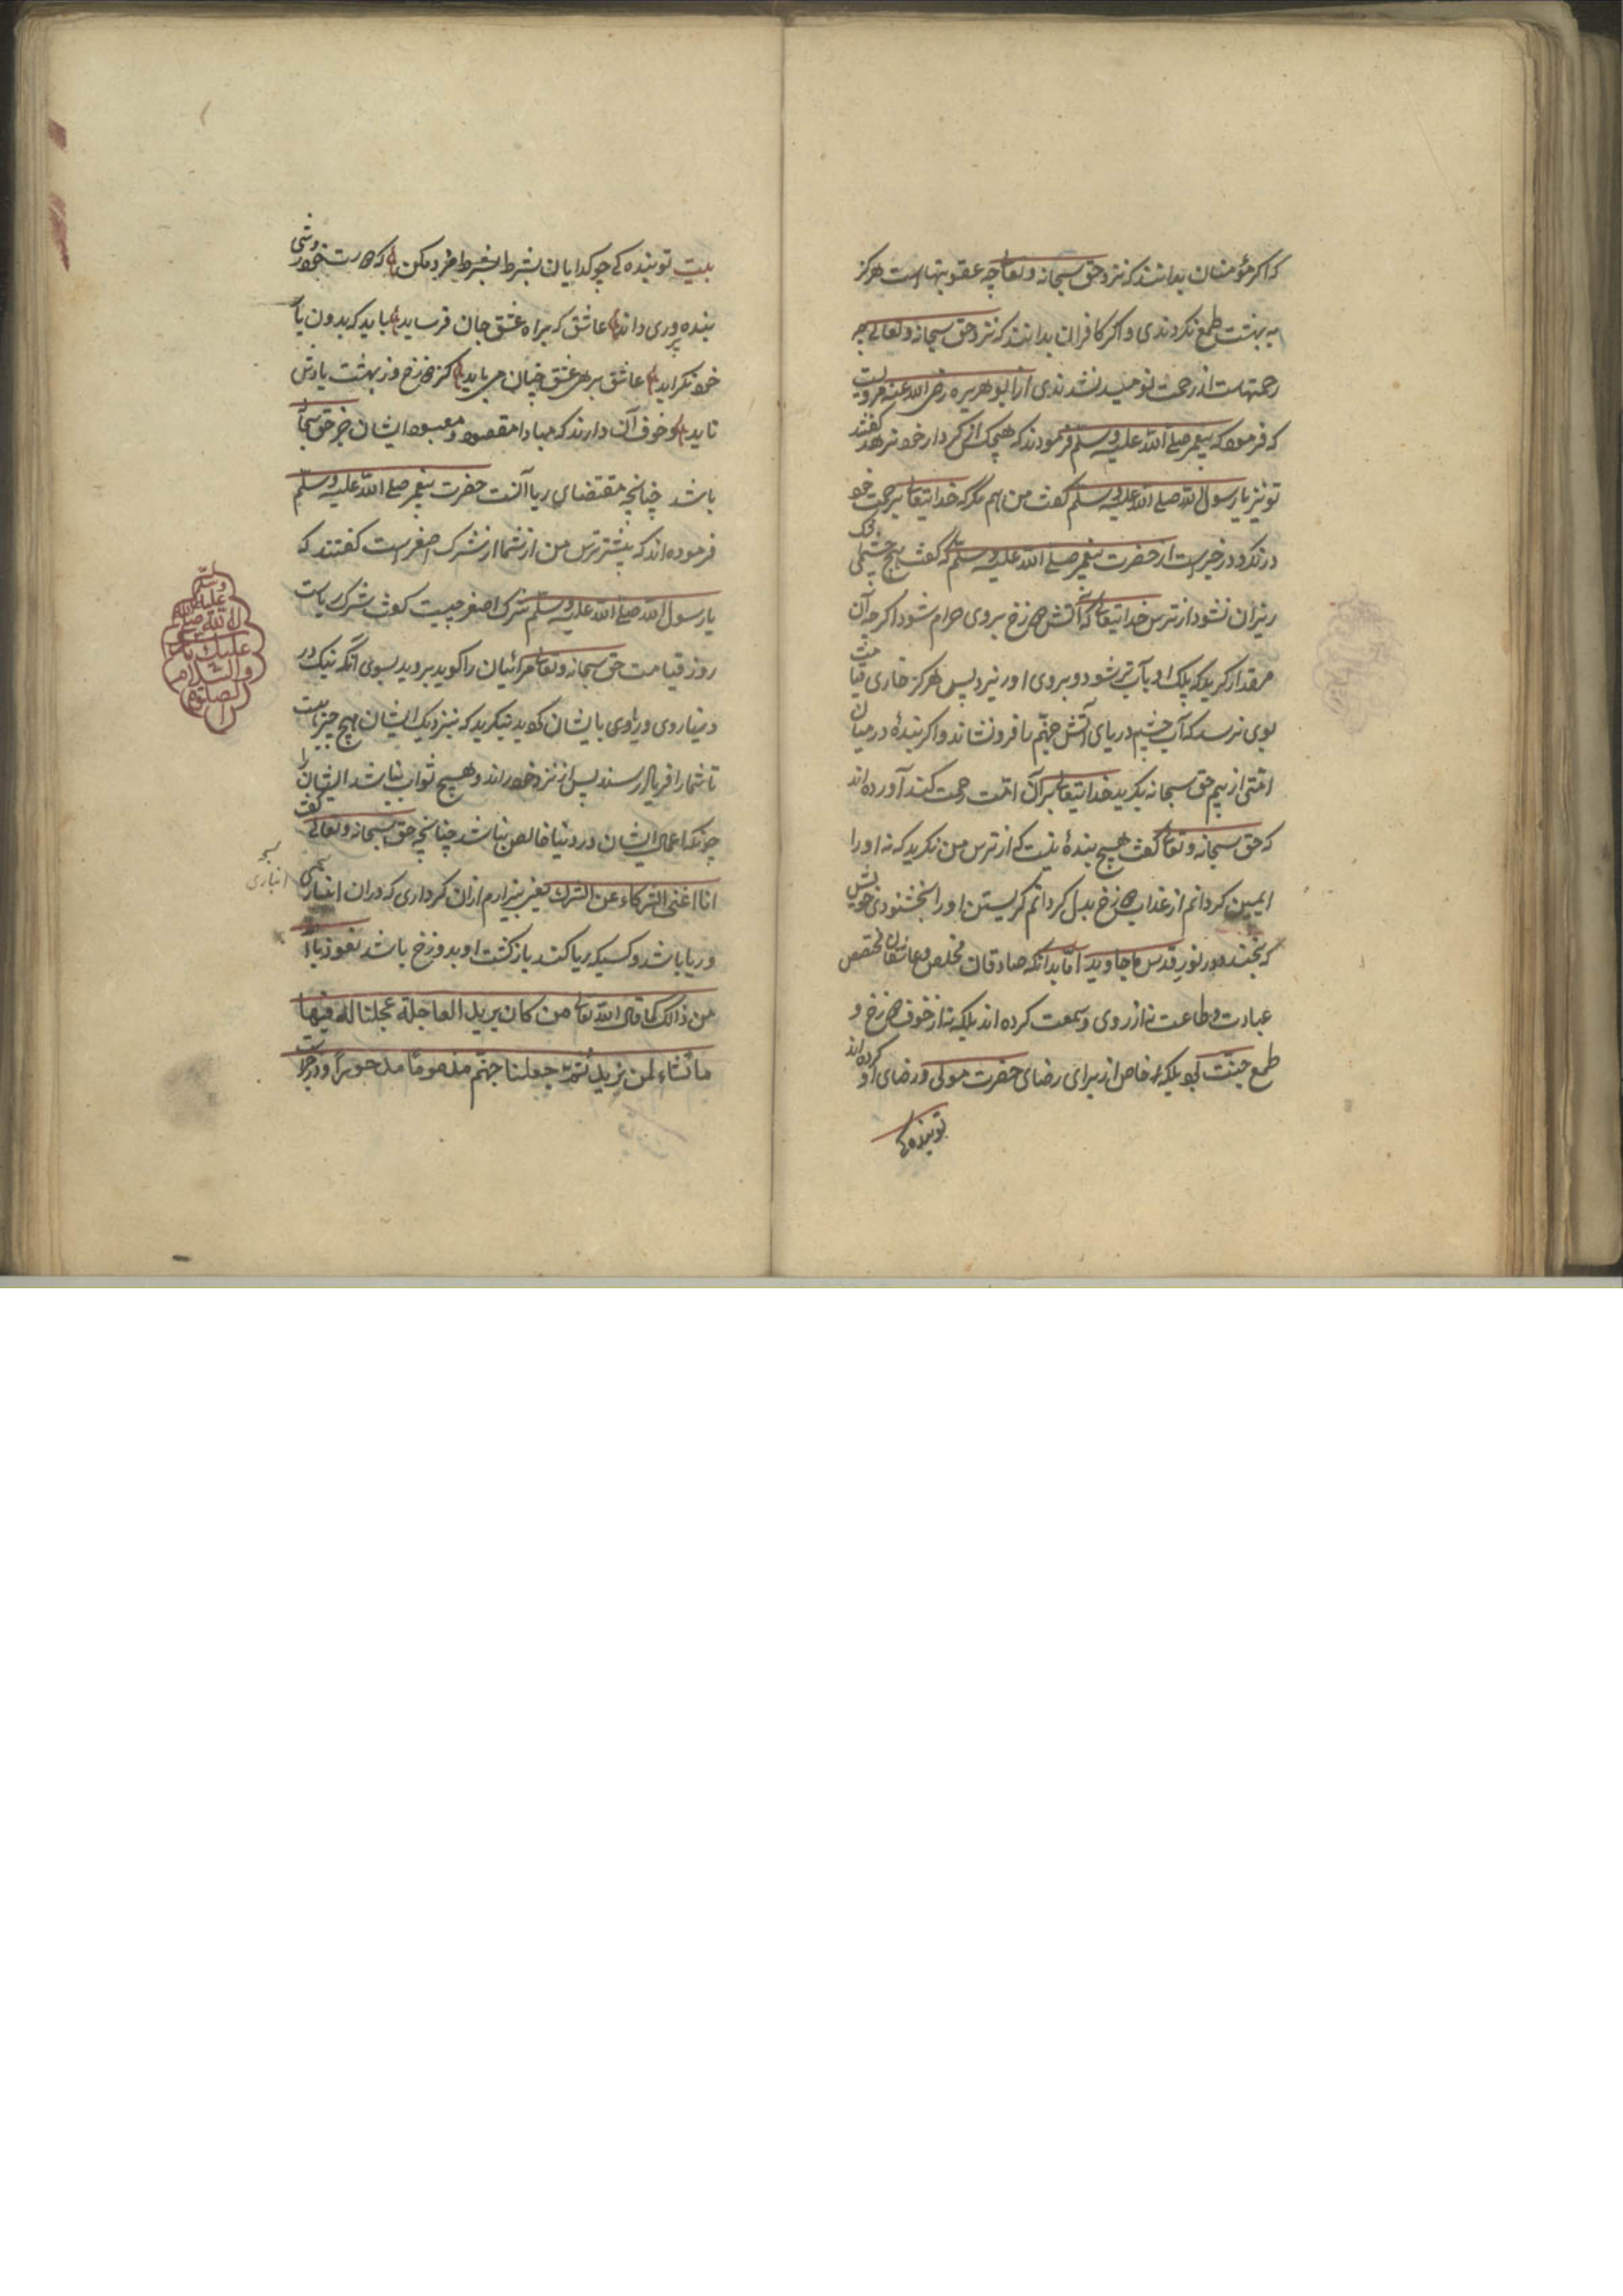 که اگر مؤمنان بدانند که نزد حق سبحانه و تعالی چه عقوبتهاست هرگز
به بهشت طمع نکردندی و اگر کافران بدانند که نزد حق سبحانه و تعالی چه
رحمتهاست از رحمت نومید نشدندی از ابو هریره رضی الله عنه مرویست
که فرمود که پیغمبر صلی الله علیه وسلم فرمودند که هیچکس را کردار خود نرهد گفتند
تو نیز یا رسول الله صلی الله علیه وسلم گفت من هم مگر که خدایتعالی برحمت خود
در خبرست از حضرت پیغمبر صلی الله علیه وسلم که گفت هیچ چشمی
ریزان نشود از ترس خدایتعالی که آتش دوزخ بروی حرام شود اگر چه آن
مقدار گرید که پلک او بآب تر شود و بروی او نریزد پس هرگز خاری قیامت
بوی نرسد که آب چشم دریای آتش جهنم را فرو نشاند و اگر بندهٔ در میان
امتی از بیم حق سبحانه بگرید خدایتعالی بر آن امت رحمت کند آورده اند
که حق سبحانه و تعالی گفت هیچ بندهٔ نیست که از ترس من بگرید که نه او را
ایمن گردانم از عذاب دوزخ بدل گردانم گریستن او را بخشنودی خویش
که بخندد در نور قدس ما جاوید اما بدانکه صادقان مخلص و عاشقان مختص
عبادت و طاعت نه از روی و سمعت کرده اند بلکه نه از خوف دوزخ و
طمع جنت بلکه خاص از برای رضای حضرت مولی و رضای او کرده اند
تو بنده کی
بیت تو بنده کی چو گدایان بشرط مزد مکن که دوست خود روش
بنده پروری داند عاشق که براه عشق جان فرساید باید که بدون یار
خود نگراید عاشق بره عشق چنان می باید کز دوزخ و ز بهشت یادش
ناید و خوف آن دارند که مبادا مقصود و معبود ایشان جز حق سبحانه
باشد چنانچه مقتضای ریا آنست حضرت پیغمبر صلی الله علیه وسلم
فرموده اند که بیشتر ترس من از شما از شرک اصغر است گفتند که
یا رسول الله صلی الله علیه وسلم شرک اصغر چیست گفت شرک ریاست
روز قیامت حق سبحانه و تعالی مرائیان را گوید بروید بسوی آنکه نیک در
دنیا روی و ریا وی بایشان گوید بنگرید که نزدیک ایشان هیچ چیز هست
تا شما را فریاد رسند پس از نزد خود راند و هیچ ثواب نباشد ایشان را
چونکه اعمال ایشان در دنیا خالص نباشد چنانچه حق سبحانه و تعالی گفت
انا اغنی الشرکاء عن الشرک یعنی بیزارم ازان کرداری که دران انبازی
انبازی
و ریا باشد و کسیکه ریا کند بازگشت او بدوزخ باشد نعوذ بالله
من ذالک کما قال الله تعالی من کان یرید العاجلة عجلنا له فیها
ما نشاء لمن نرید ثم جعلنا جهنم مذموما مدحورا
الصلوة
والسلام
عليك يا